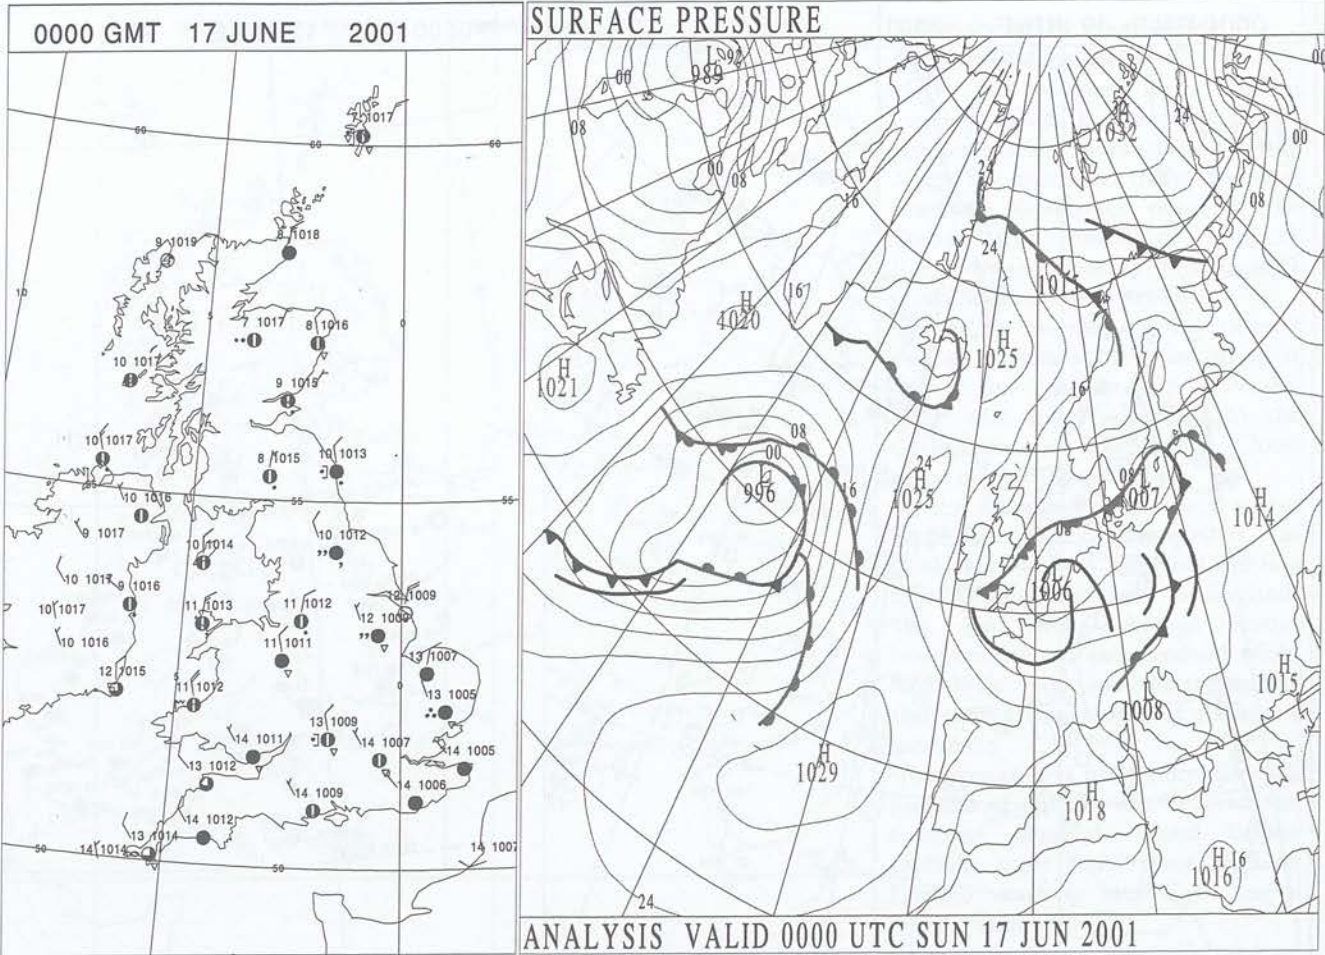 0000 GMT 17 JUNE 2001
7 1017
60
60
60
9 1019
8 1018
10
5
0
7 1017
8 1016
10 1017
9 1015
10 1017
8 1015
10 1013
55
55
55
10 1016
9 1017
10 1014
10 1012
10 1017
9 1016
12 1009
10 1017
11 1013
11 1012
12 1009
10 1016
11 1011
12 1015
13 1007
5
0
11 1012
13 1005
13 1009
14 1011
14 1007
14 1005
13 1012
14 1009
14 1006
14 1012
13 1014
14 1014
14 1007
50
50
SURFACE PRESSURE
L
989
92
00
00
08
H
1032
24
00
00
08
16
24
08
24
L
101
H
1020
16
H
1025
H
1021
16
08
00
L
996
16
24
H
1025
08
L
1007
H
1014
08
1006
H
1015
L
1008
H
1029
H
1018
H
1016
16
24
ANALYSIS VALID 0000 UTC SUN 17 JUN 2001